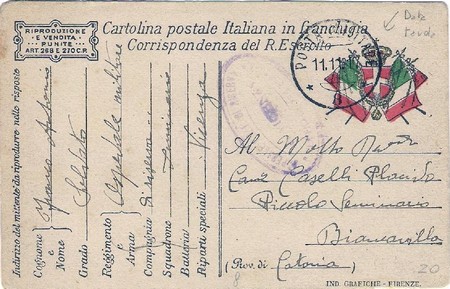 RIPRODUZIONE
E VENDITA
PUNITE
ART. 268 E 270 C.P.
Cartolina postale Italiana in franchigia
Corrispondenza del R. Esercito
Data
11.11.1
Indirizzo del mittente da riprodurre nelle risposte
Cognome e Nome
Grado Soldato
Reggimento e Arma Ospedale militare
Compagnia di riserva
Squadrone Seminario
Batteria Vicenza
Riparti speciali
Al Molto
Can. Caselli Placido
Piccolo Seminario
Biancavilla
(Prov. di Catania)
8
20
IND. GRAFICHE - FIRENZE.